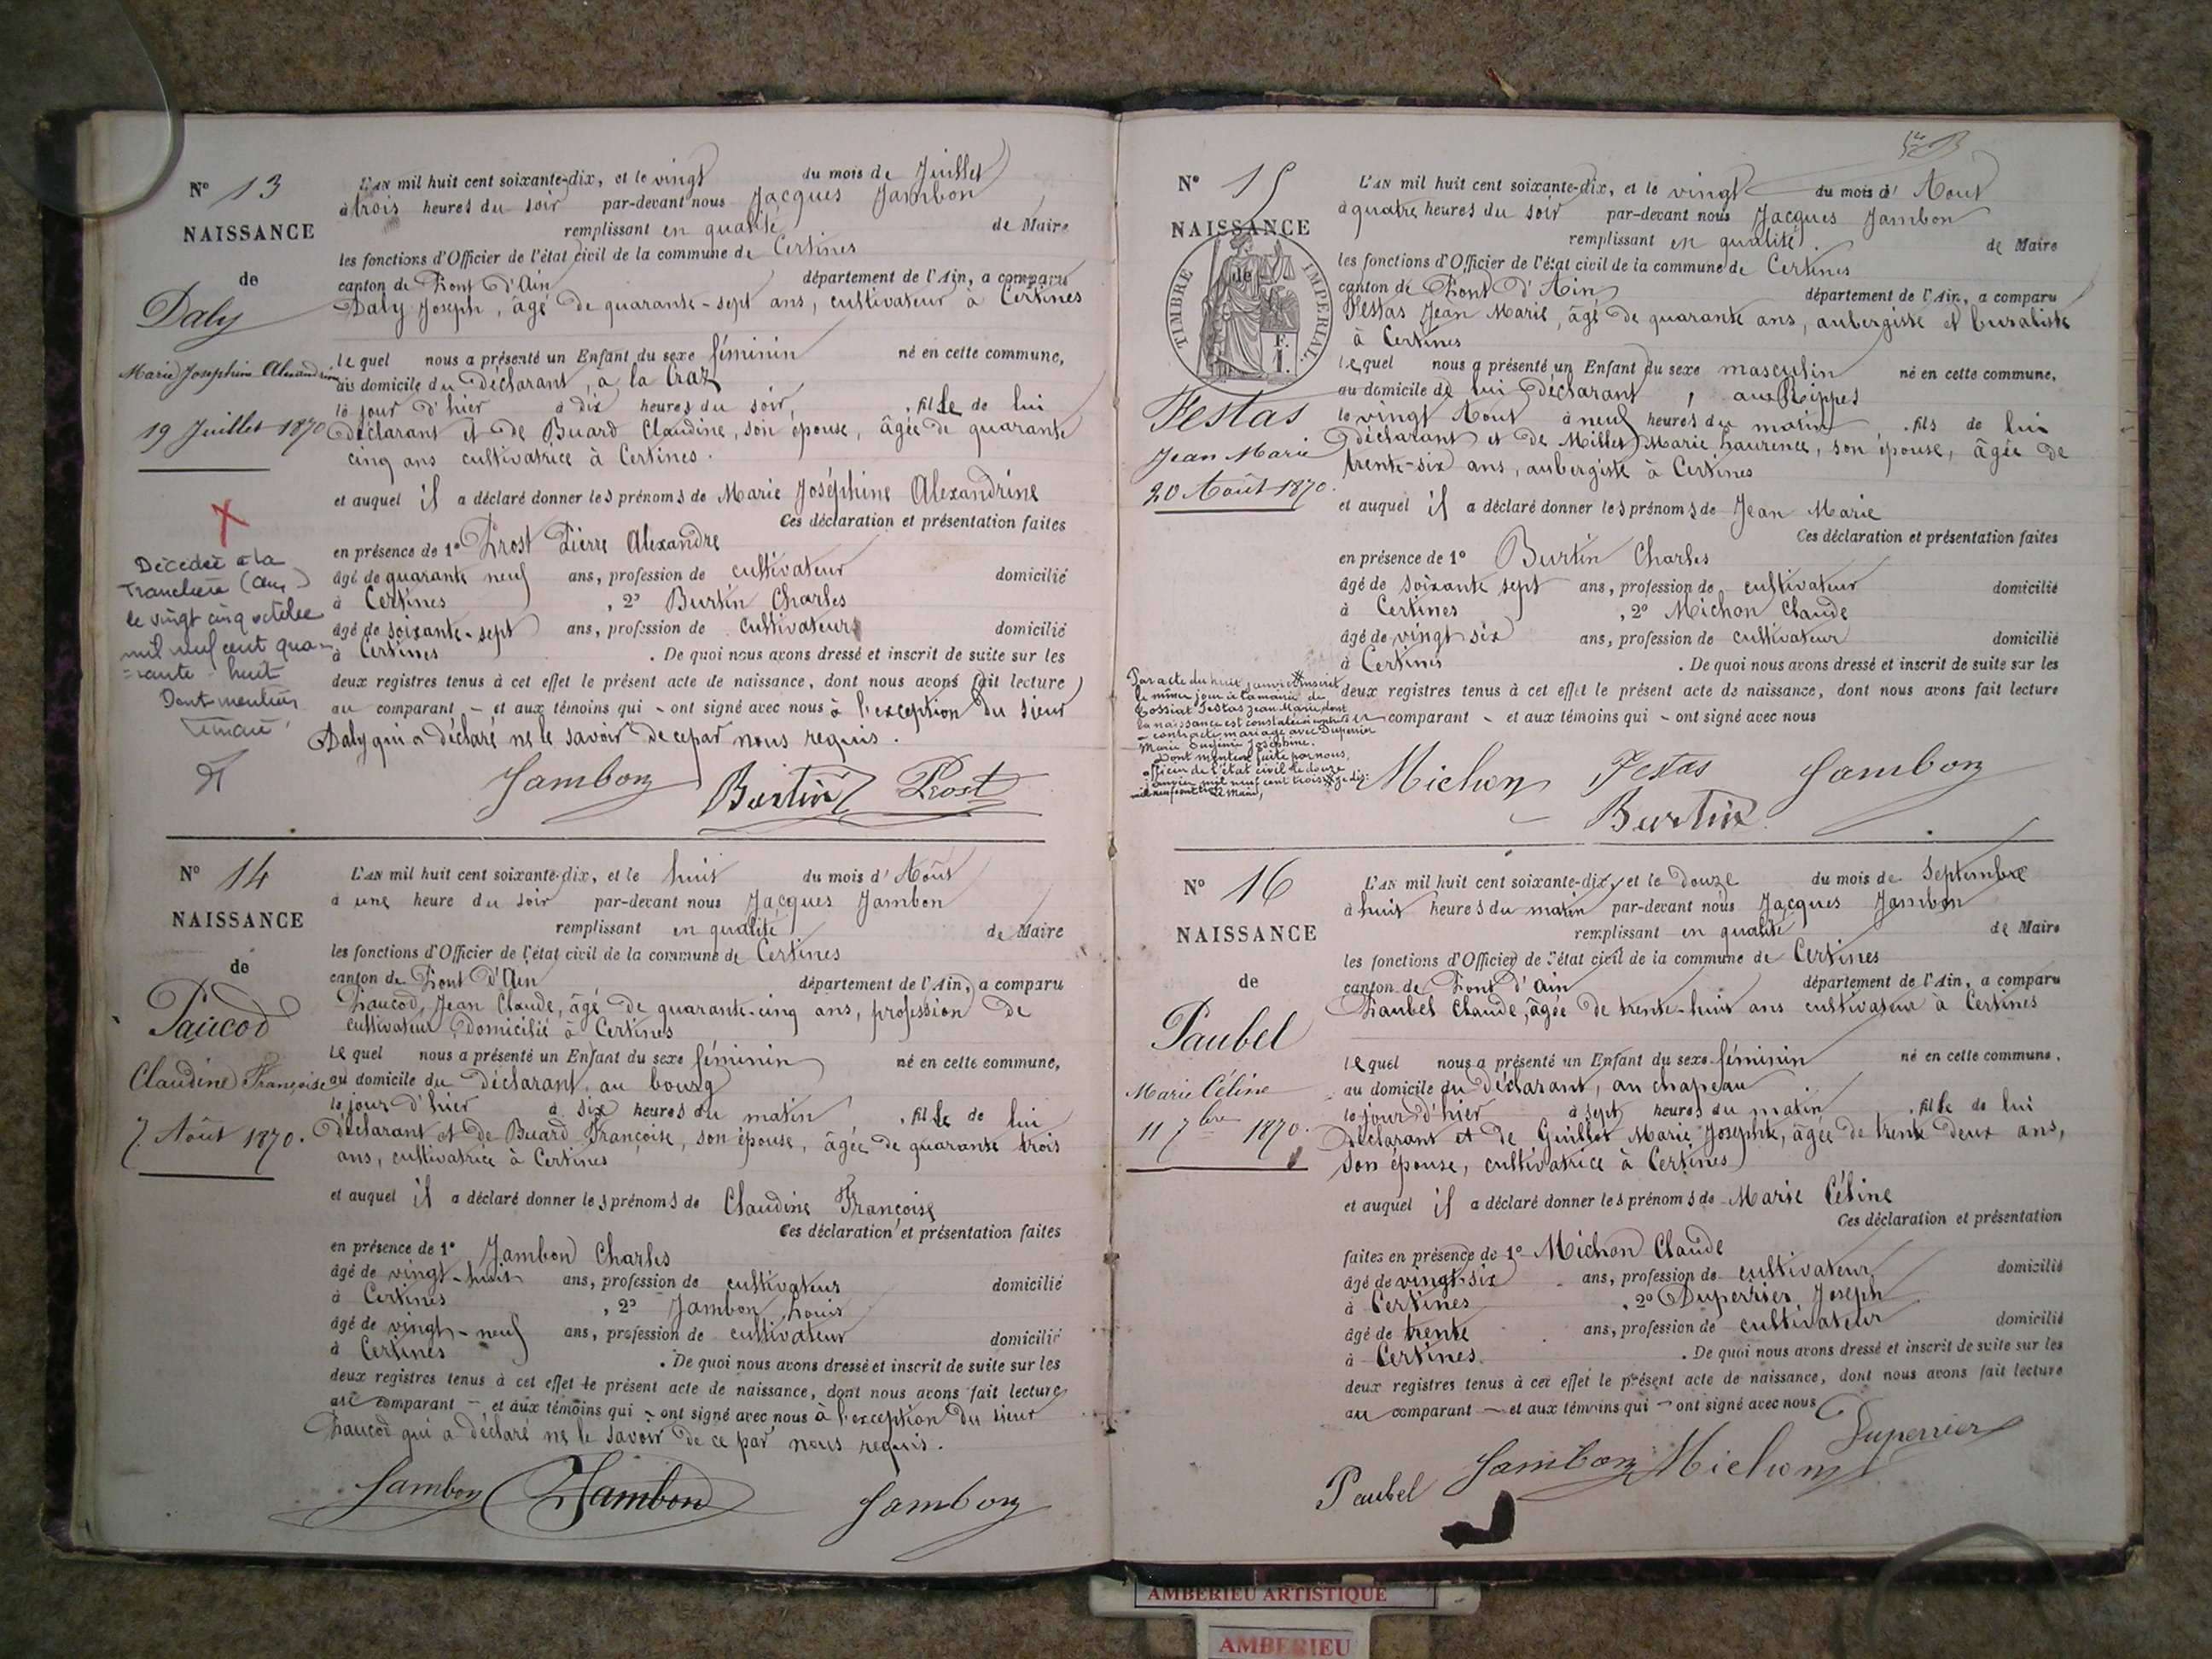 N° 13
NAISSANCE
de
Daly
Marie Joséphine Alexandrine
19 Juillet 1870
Décédée à la
Tranclière (Ain)
le vingt cinq octobre
mil neuf cent qua-
=rante-huit
Dont mention
L'AN mil huit cent soixante-dix, et le vingt du mois de Juillet
à trois heures du soir par-devant nous Jacques Jambon
remplissant en qualité de Maire
les fonctions d'Officier de l'état civil de la commune de Certines
canton de Pont d'Ain département de l'Ain, a comparu
Daly Joseph, âgé de quarante-sept ans, cultivateur à Certines
lequel nous a présenté un Enfant du sexe féminin né en cette commune,
au domicile du Déclarant, à la Craz
le jour d'hier à dix heures du soir, fille de lui
déclarant et de Buard Claudine, son épouse, âgée de quarante
cinq ans cultivatrice à Certines.
et auquel il a déclaré donner les prénoms de Marie Joséphine Alexandrine
Ces déclaration et présentation faites
en présence de 1° Prost Pierre Alexandre
âgé de quarante neuf ans, profession de cultivateur domicilié
à Certines, 2° Burtin Charles
âgé de soixante-sept ans, profession de cultivateur domicilié
à Certines. De quoi nous avons dressé et inscrit de suite sur les
deux registres tenus à cet effet le présent acte de naissance, dont nous avons fait lecture
au comparant - et aux témoins qui - ont signé avec nous à l'exception du sieur
Daly qui a déclaré ne le savoir de ce par nous requis.
Jambon Burtin Prost
N° 14
NAISSANCE
de
Paucod
Claudine Françoise
7 Août 1870.
L'AN mil huit cent soixante-dix, et le huit du mois d'Août
à une heure du soir par-devant nous Jacques Jambon
remplissant en qualité de Maire
les fonctions d'Officier de l'état civil de la commune de Certines
canton de Pont d'Ain département de l'Ain, a comparu
Paucod, Jean Claude, âgé de quarante-cinq ans, profession de
cultivateur, domicilié à Certines
lequel nous a présenté un Enfant du sexe féminin né en cette commune,
au domicile du Déclarant, au bourg
le jour d'hier à six heures du matin, fille de lui
déclarant et de Buard Françoise, son épouse, âgée de quarante trois
ans, cultivatrice à Certines
et auquel il a déclaré donner les prénoms de Claudine Françoise
Ces déclaration et présentation faites
en présence de 1° Jambon Charles
âgé de vingt-huit ans, profession de cultivateur domicilié
à Certines, 2° Jambon Louis
âgé de vingt-neuf ans, profession de cultivateur domicilié
à Certines. De quoi nous avons dressé et inscrit de suite sur les
deux registres tenus à cet effet le présent acte de naissance, dont nous avons fait lecture
au comparant - et aux témoins qui - ont signé avec nous à l'exception du sieur
Paucod qui a déclaré ne le savoir de ce par nous requis.
Jambon Jambon Jambon
N° 15
NAISSANCE
de
TIMBRE IMPERIAL.
F.
1.
Festas
Jean Marie
20 Août 1870.
Par acte du huit janvier inscrit
le même jour à la mairie de
Tossiat Festas Jean Marie dont
la naissance est constatée ci contre
a contracté mariage avec Duperrier
Marie Eugénie Joséphine.
Dont mention faite par nous,
officier de l'état civil le douze
janvier mil neuf cent trois
Le Maire,
L'AN mil huit cent soixante-dix, et le vingt du mois d'Aout
à quatre heures du soir par-devant nous Jacques Jambon
remplissant en qualité de Maire
les fonctions d'Officier de l'état civil de la commune de Certines
canton de Pont d'Ain département de l'Ain, a comparu
Festas Jean Marie, âgé de quarante ans, aubergiste et buraliste
à Certines
lequel nous a présenté un Enfant du sexe masculin né en cette commune,
au domicile de lui Déclarant, aux Rippes
le vingt Aout à neuf heures du matin, fils de lui
déclarant et de Millet Marie Laurence, son épouse, âgée de
trente-six ans, aubergiste à Certines
et auquel il a déclaré donner les prénoms de Jean Marie
Ces déclaration et présentation faites
en présence de 1° Burtin Charles
âgé de soixante sept ans, profession de cultivateur domicilié
à Certines, 2° Michon Claude
âgé de vingt-six ans, profession de cultivateur domicilié
à Certines. De quoi nous avons dressé et inscrit de suite sur les
deux registres tenus à cet effet le présent acte de naissance, dont nous avons fait lecture
au comparant - et aux témoins qui - ont signé avec nous
Michon Festas Jambon
Burtin
N° 16
NAISSANCE
de
Paubel
Marie Céline
11 7bre 1870.
L'AN mil huit cent soixante-dix, et le douze du mois de Septembre
à huit heures du matin par-devant nous Jacques Jambon
remplissant en qualité de Maire
les fonctions d'Officier de l'état civil de la commune de Certines
canton de Pont d'ain département de l'Ain, a comparu
Paubel Claude, âgée de trente-huit ans cultivateur à Certines
lequel nous a présenté un Enfant du sexe féminin né en cette commune,
au domicile du déclarant, au chapeau
le jour d'hier à sept heures du matin, fille de lui
Déclarant et de Guillot Marie Josephte, âgée de trente deux ans,
son épouse, cultivatrice à Certines
et auquel il a déclaré donner les prénoms de Marie Céline
Ces déclaration et présentation
faites en présence de 1° Michon Claude
âgé de vingt-six ans, profession de cultivateur domicilié
à Certines, 2° Duperrier Joseph
âgé de trente ans, profession de cultivateur domicilié
à Certines. De quoi nous avons dressé et inscrit de suite sur les
deux registres tenus à cet effet le présent acte de naissance, dont nous avons fait lecture
au comparant - et aux témoins qui - ont signé avec nous
Duperrier
Paubel Jambon Michon
AMBERIEU ARTISTIQUE
AMBERIEU